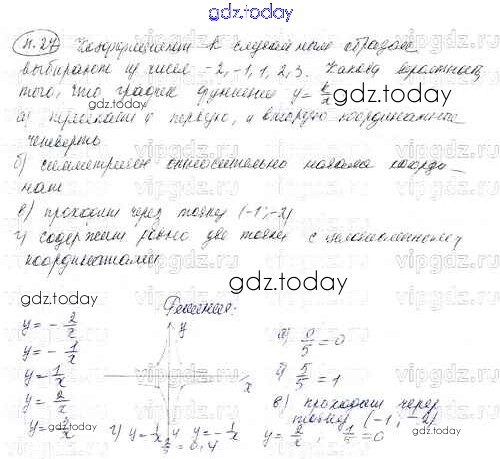 gdz.today
п. 27 Коэффициент k случайным образом
выбирают из чисел -2, -1, 1, 2, 3. Какова вероятность
того, что график функции y = k/x
gdz.today
а) пересекает и первую, и вторую координатные
четверти
б) симметричен относительно начала коорди-
нат
в) проходит через точку (-1; -2)
г) содержит ровно две точки с целочисленными
координатами
gdz.today
gdz.today
Решение:
y = -2/x
y = -1/x
y = 1/x
y = 2/x
y
x
а) 0/5 = 0
б) 5/5 = 1
в) проходит через
точку (-1; -2)
y = 2/x,
г) y = 1/x, y = -1/x
gdz.today